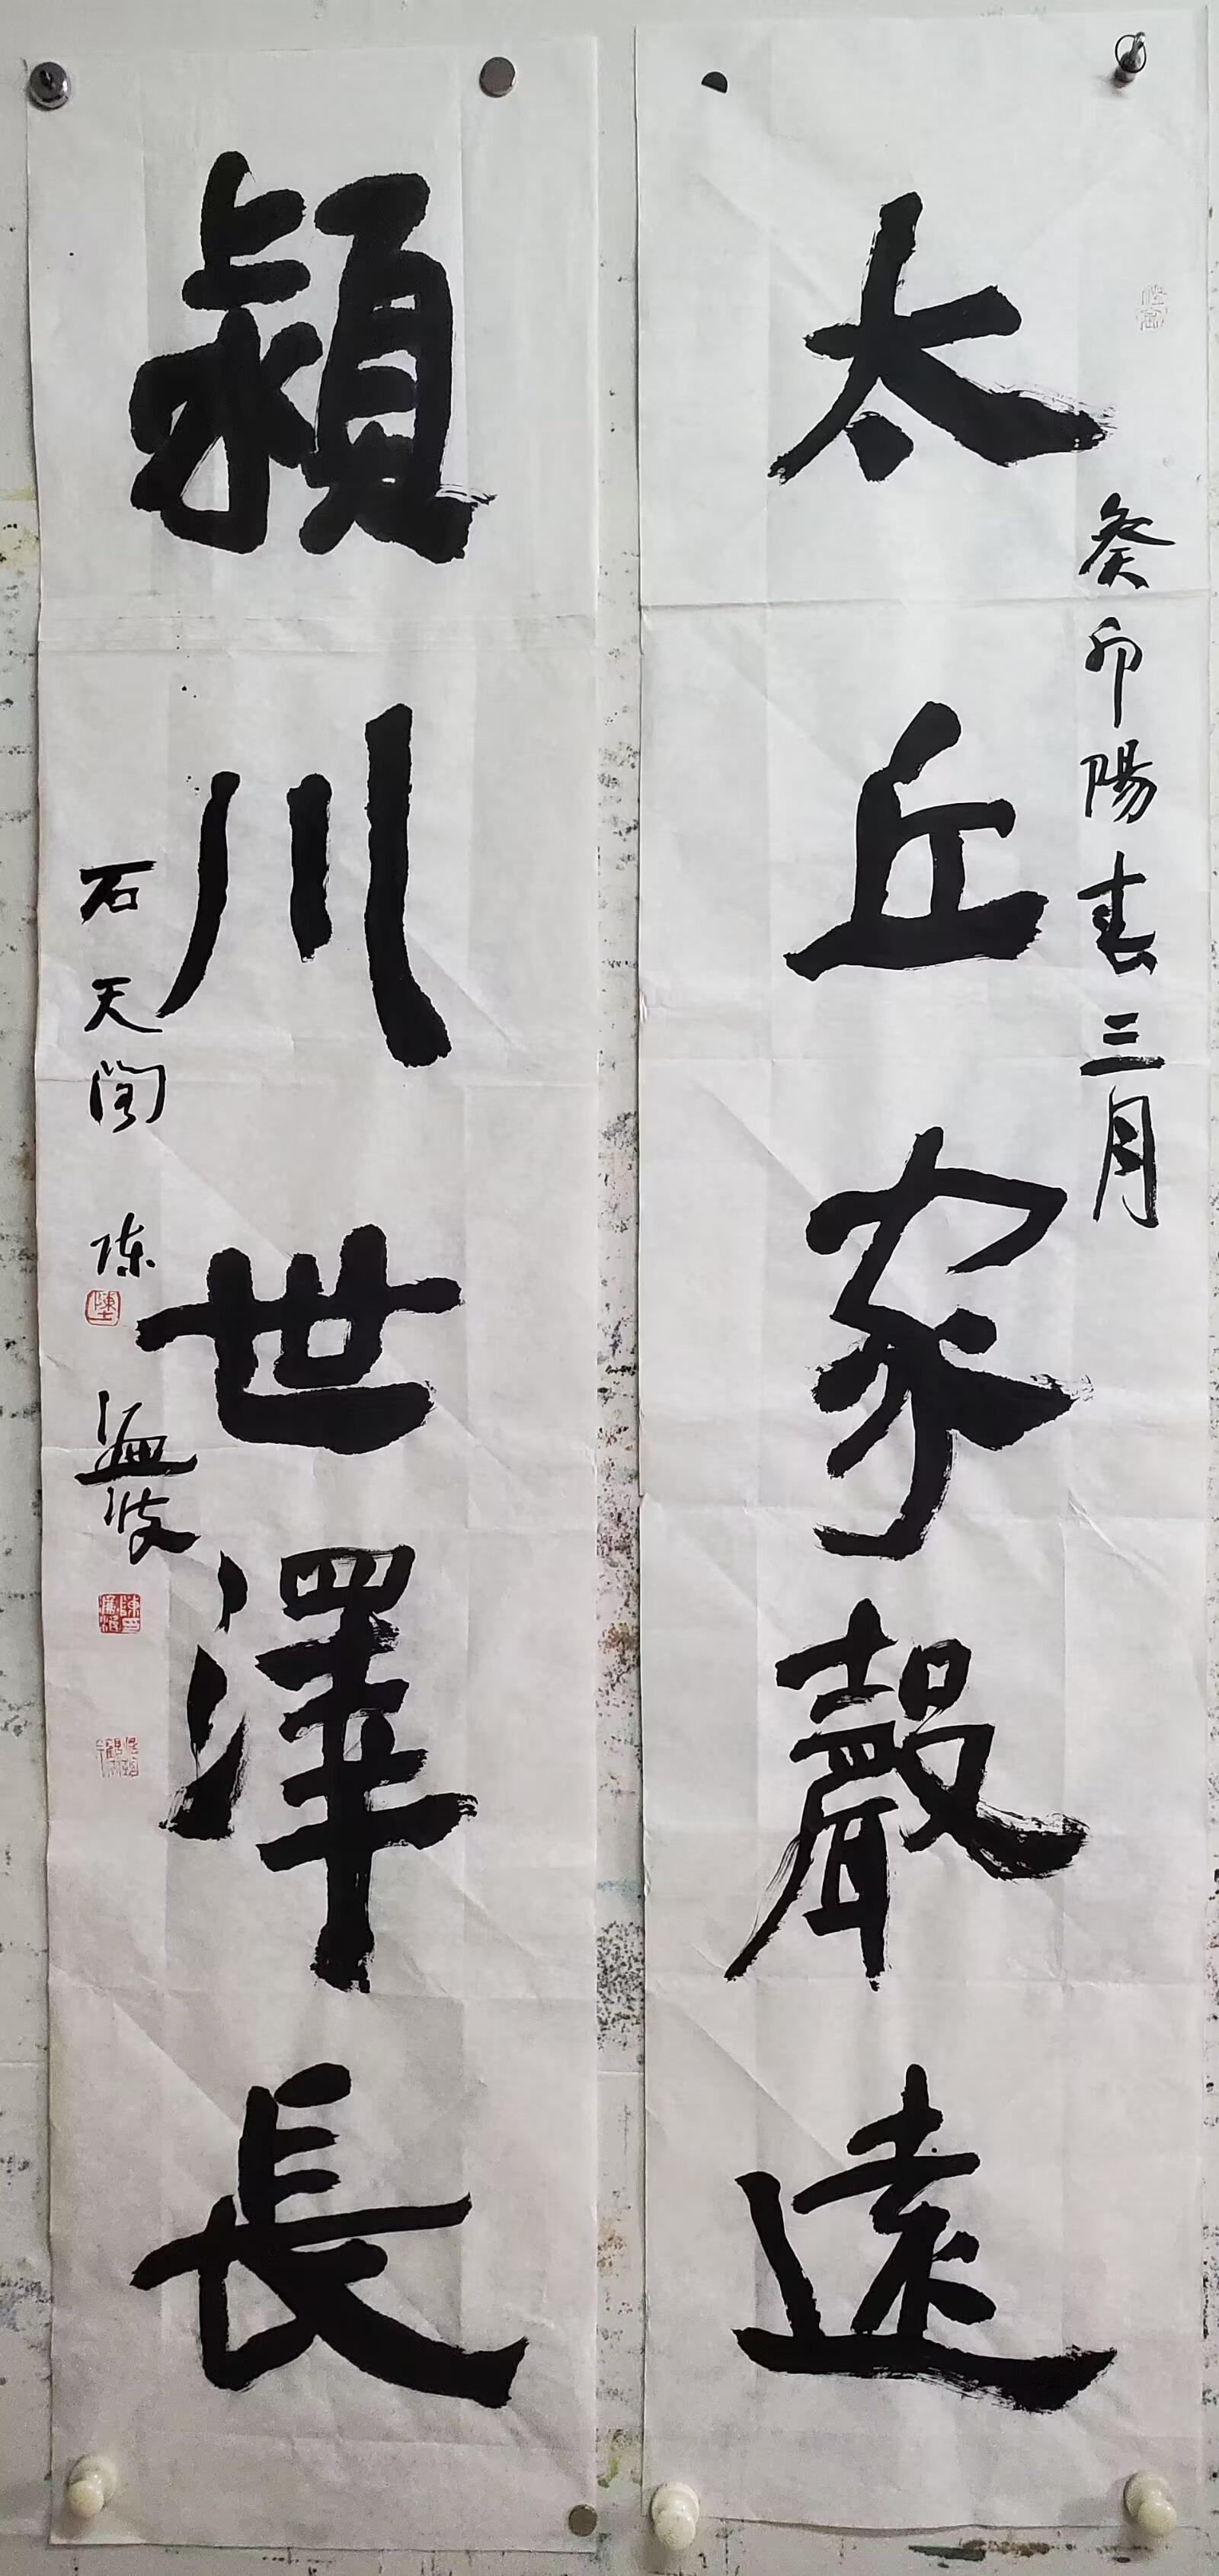 癸卯陽春三月
太丘家聲遠
潁川世澤長
石天閣 陳